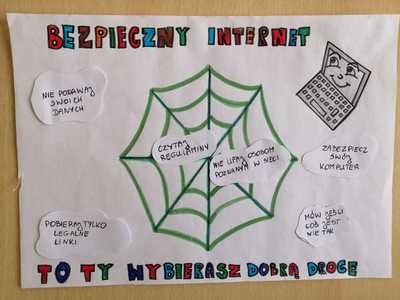 BEZPIECZNY INTERNET
NIE PODAWAJ
SWOICH
DANYCH
CZYTAJ
REGULAMINY
NIE UFAJ OSOBOM
POZNANYM W SIECI
ZABEZPIECZ
SWÓJ
KOMPUTER
POBIERAJ TYLKO
LEGALNE
LINKI
MÓW JEŚLI
COŚ JEST
NIE TAK
TO TY WYBIERASZ DOBRĄ DROGĘ